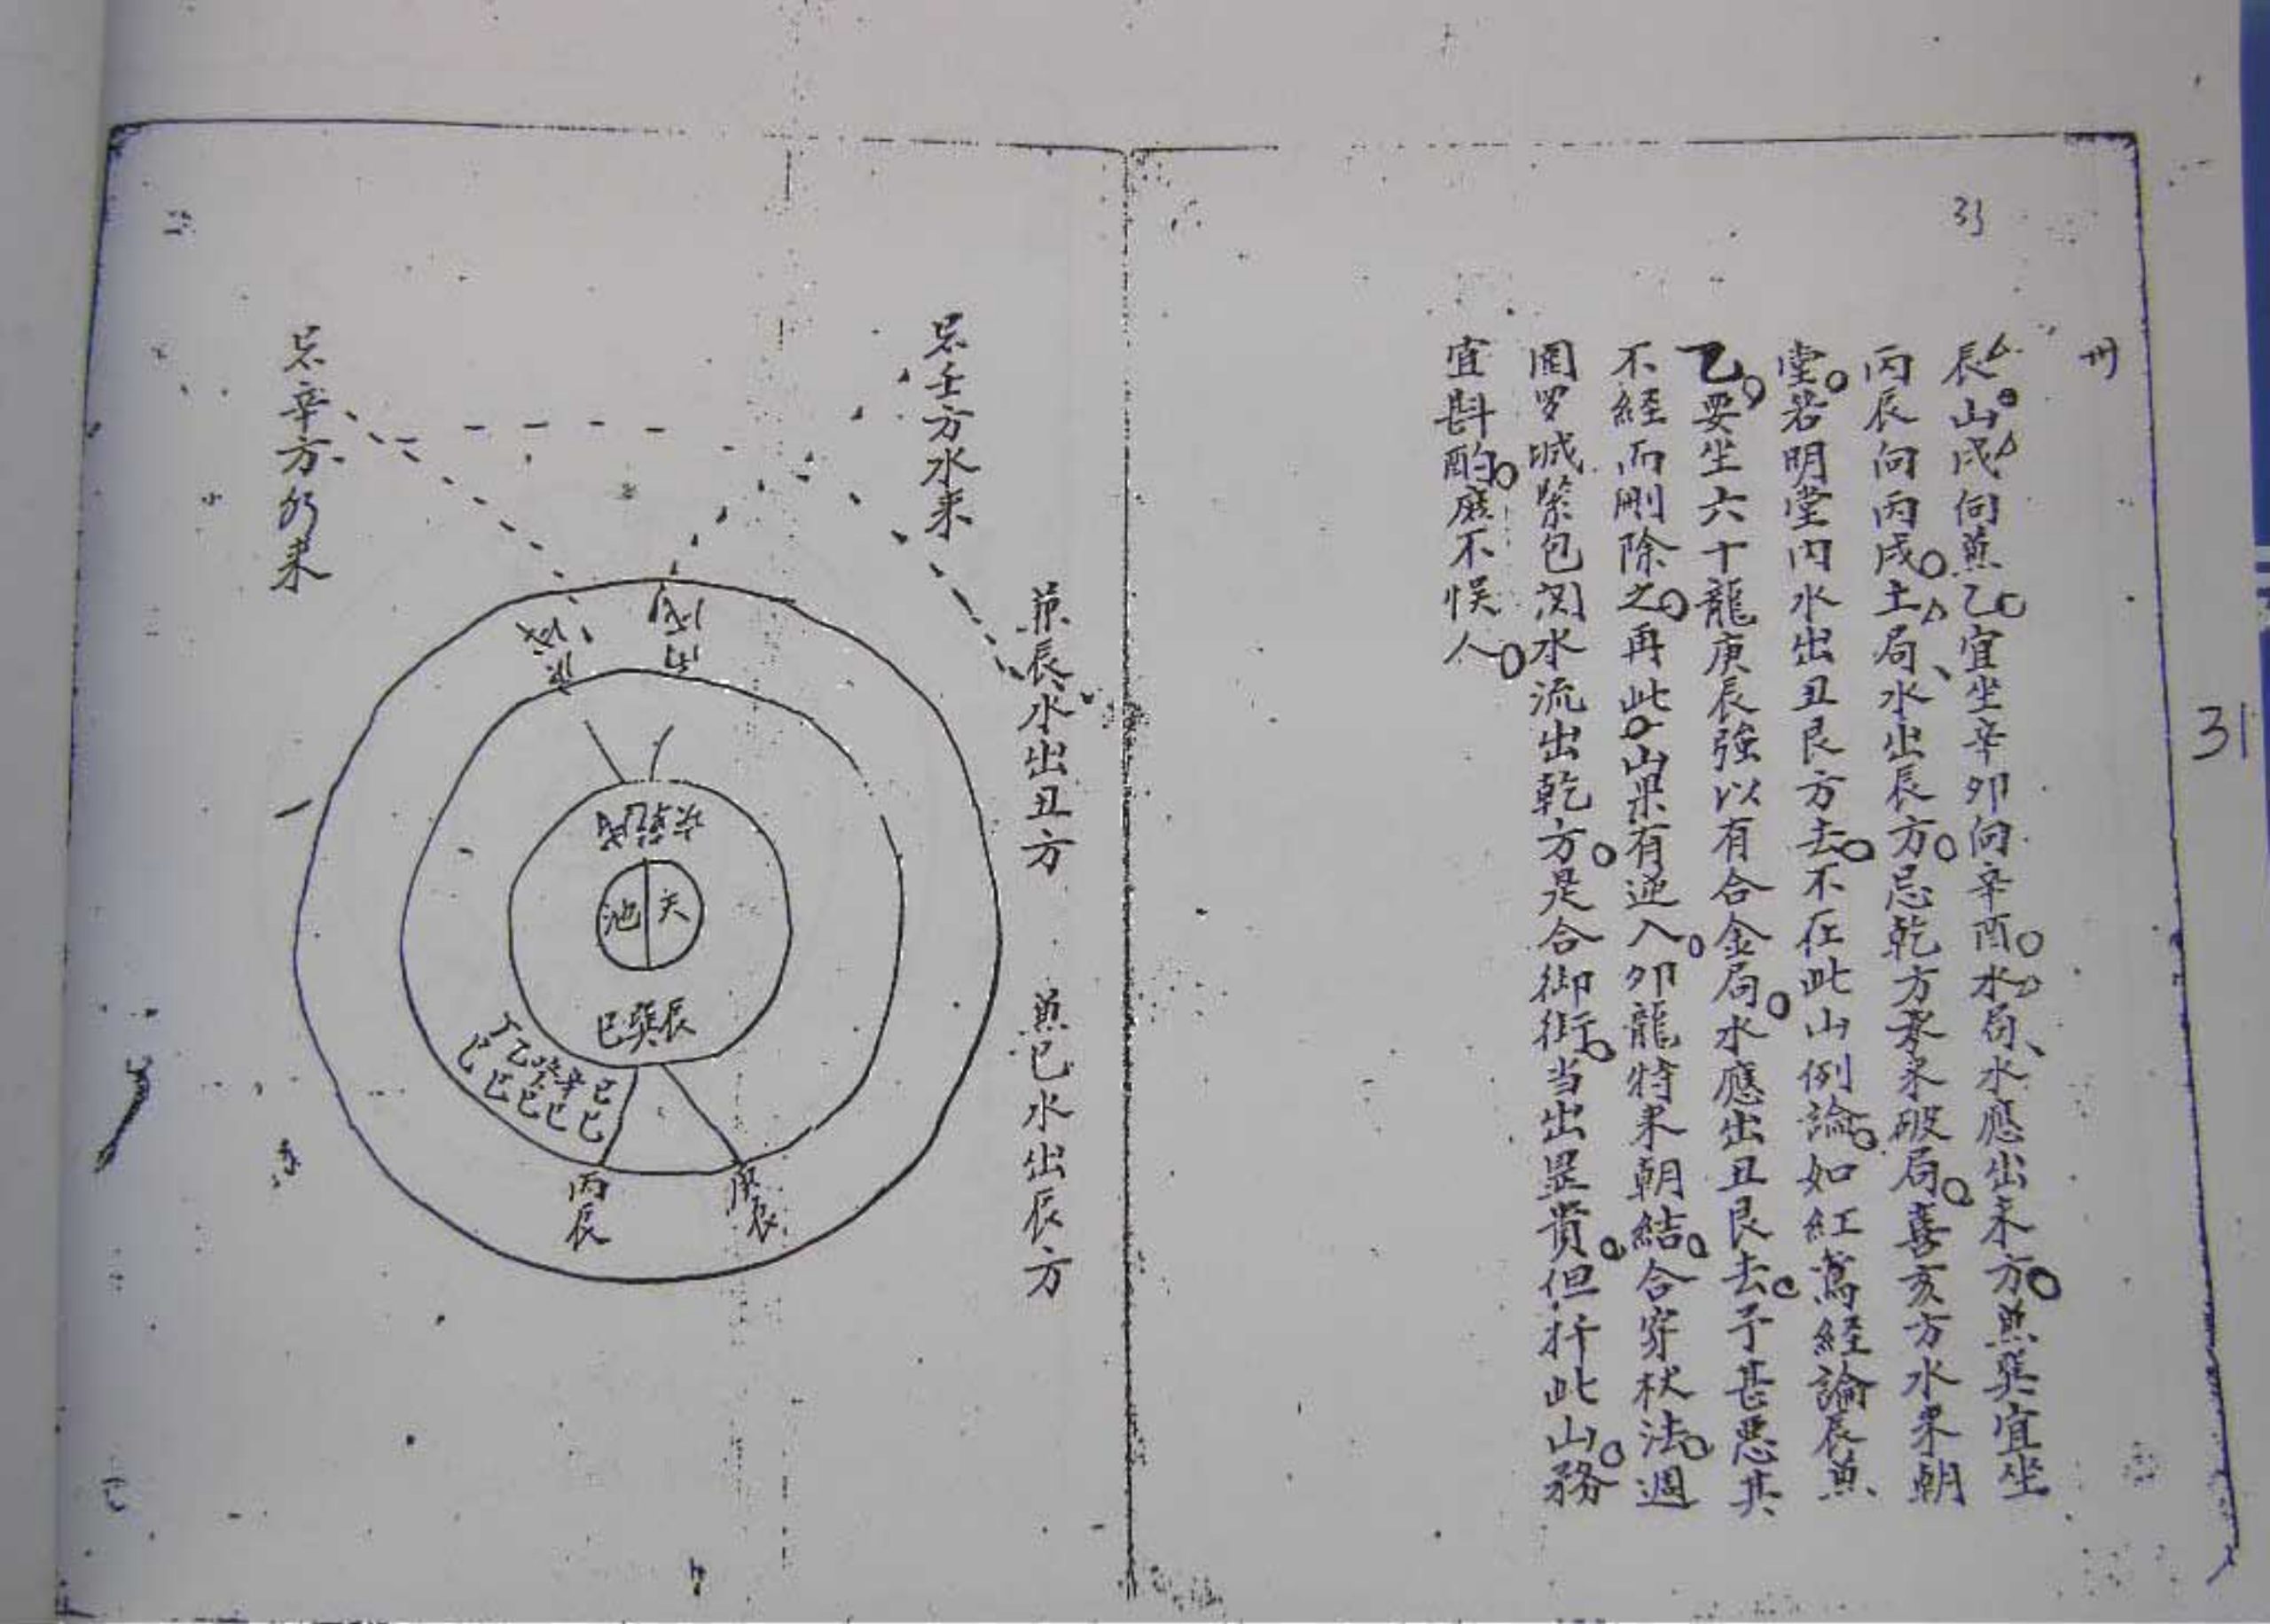 31
31
卅
辰山戌向兼乙宜坐辛卯向辛酉水局水應出未方兼巽宜坐
丙辰向丙戌土局水出辰方忌乾方來水破局喜亥方水來朝
堂若明堂內水出丑艮方去不在此山例論如紅鸞經論辰兼
乙要坐六十龍庚辰強以有合金局水應出丑艮去予甚惡其
不経而刪除之再此山果有逆入卯龍特來朝結合穿杖法週
圍罗城緊包関水流出乾方是合御街当出显貴但扦此山務
宜斟酌庶不悞人
兼辰水出丑方
兼巳水出辰方
忌壬方水来
忌辛方水来
天
池
辰巽巳
丙辰
庚辰
辛巳
癸巳
乙巳
丁巳